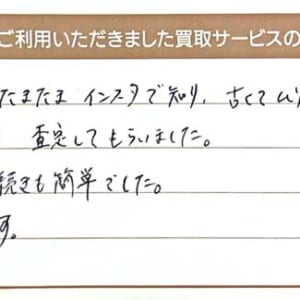 ご利用いただきました買取サービスの
たまたま インスタで知り、古くて
査定してもらいました。
続きも簡単でした。
す。